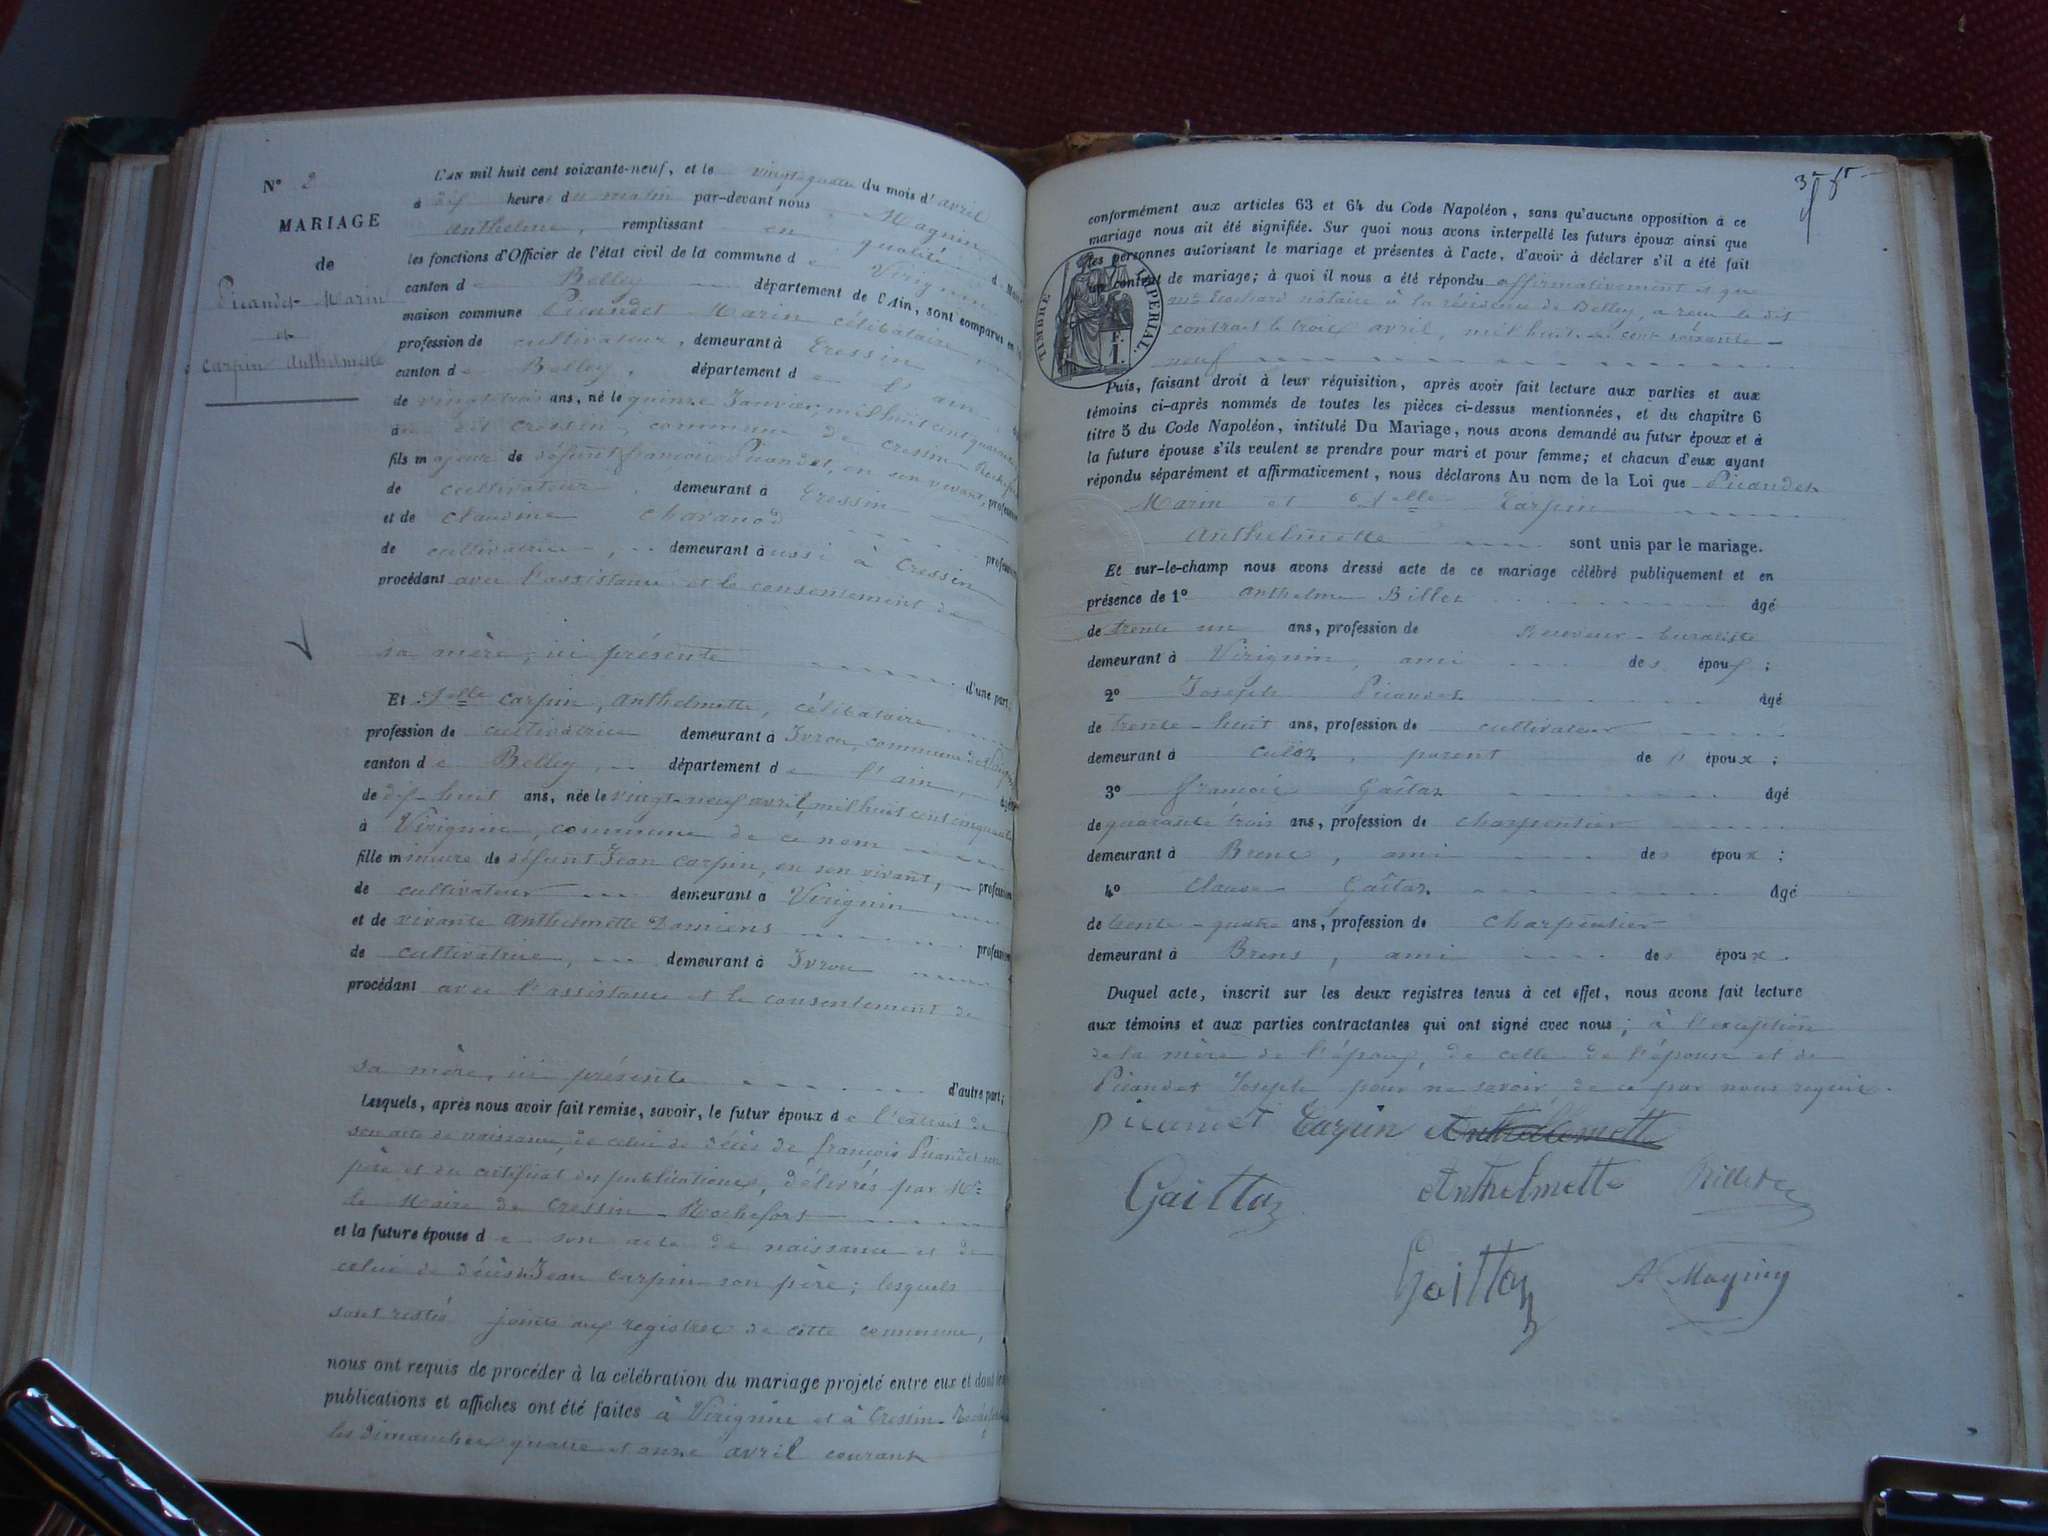 N° 2
MARIAGE
de
Picandet Marin
et
Carpin Anthelmette
L'AN mil huit cent soixante-neuf, et le vingt quatre du mois d'avril
à dix heures du matin par-devant nous Magnin
Anthelme, remplissant en qualité d
les fonctions d'Officier de l'état civil de la commune de Virignin
canton de Belley département de l'Ain, sont comparus en
maison commune Picandet Marin célibataire,
profession de cultivateur, demeurant à Cressin
canton de Belley, département de l'ain,
de vingt trois ans, né le quinze Janvier, mil huit cent quarante
à dit Cressin, commune de Cressin Rochefort
fils majeur de défunt françois Picandet, en son vivant, profession
de cultivateur, demeurant à Cressin
et de Claudine Charanod profession
de cultivatrice, demeurant aussi à Cressin
procédant avec l'assistance et le consentement de
sa mère, ici présente d'une part;
Et Delle Carpin, Anthelmette, célibataire
profession de cultivatrice demeurant à Ivrou, commune de Virignin
canton de Belley, département de l'ain,
de dix-huit ans, née le vingt-neuf avril, mil huit cent cinquante
à Virignin, commune de ce nom
fille mineure de défunt Jean Carpin, en son vivant, profession
de cultivateur demeurant à Virignin
et de vivante Anthelmette Damiens profession
de cultivatrice, demeurant à Ivrou
procédant avec l'assistance et le consentement de
sa mère, ici présente d'autre part;
Lesquels, après nous avoir fait remise, savoir, le futur époux de l'extrait de
son acte de naissance, de celui de décès de françois Picandet son
père et du certificat des publications, délivrés par Mr
le Maire de Cressin-Rochefort
et la future épouse de son acte de naissance et de
celui de décès de Jean Carpin son père; lesquels
sont restés joints aux registres de cette commune,
nous ont requis de procéder à la célébration du mariage projeté entre eux et dont les
publications et affiches ont été faites à Virignin et à Cressin-Rochefort
les dimanches quatre et onze avril courant
conformément aux articles 63 et 64 du Code Napoléon, sans qu'aucune opposition à ce
mariage nous ait été signifiée. Sur quoi nous avons interpellé les futurs époux ainsi que
les personnes autorisant le mariage et présentes à l'acte, d'avoir à déclarer s'il a été fait
un contrat de mariage; à quoi il nous a été répondu affirmativement et que
Me notaire à la résidence de Belley, a reçu le dit
contrat le trois avril, mil huit cent soixante-
neuf
TIMBRE IMPERIAL.
F.
1.
Puis, faisant droit à leur réquisition, après avoir fait lecture aux parties et aux
témoins ci-après nommés de toutes les pièces ci-dessus mentionnées, et du chapitre 6
titre 5 du Code Napoléon, intitulé Du Mariage, nous avons demandé au futur époux et à
la future épouse s'ils veulent se prendre pour mari et pour femme; et chacun d'eux ayant
répondu séparément et affirmativement, nous déclarons Au nom de la Loi que Picandet
Marin et Delle Carpin
Anthelmette sont unis par le mariage.
Et sur-le-champ nous avons dressé acte de ce mariage célébré publiquement et en
présence de 1° Anthelme Billet âgé
de trente un ans, profession de Receveur-buraliste
demeurant à Virignin, ami des époux;
2° Joseph Picandet âgé
de trente-huit ans, profession de cultivateur
demeurant à Culoz, parent de l'époux;
3° françois Gaîtaz âgé
de quarante trois ans, profession de charpentier
demeurant à Brens, ami des époux;
4° Claude Gaîtaz âgé
de trente-quatre ans, profession de charpentier
demeurant à Brens, ami des époux.
Duquel acte, inscrit sur les deux registres tenus à cet effet, nous avons fait lecture
aux témoins et aux parties contractantes qui ont signé avec nous; à l'exception
de la mère de l'époux, de celle de l'épouse et de
Picandet Joseph pour ne savoir, de ce par nous requis.
Picandet Carpin
Gaittaz Anthelmette Billet
Gaittaz A Magnin